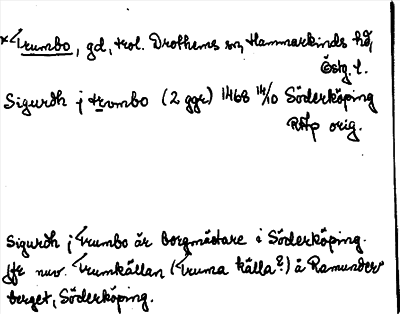 *Trumbo, gd, trol. Drothems sn, Hammarkinds hd,
Östg. l.
Sigurdh j trombo (2 ggr) 1468 14/10 Söderköping
RAp orig.
Sigurdh j Trumbo är borgmästare i Söderköping.
Jfr nuv. Trumkällan (Truma källa?) å Ramunder-
berget, Söderköping.